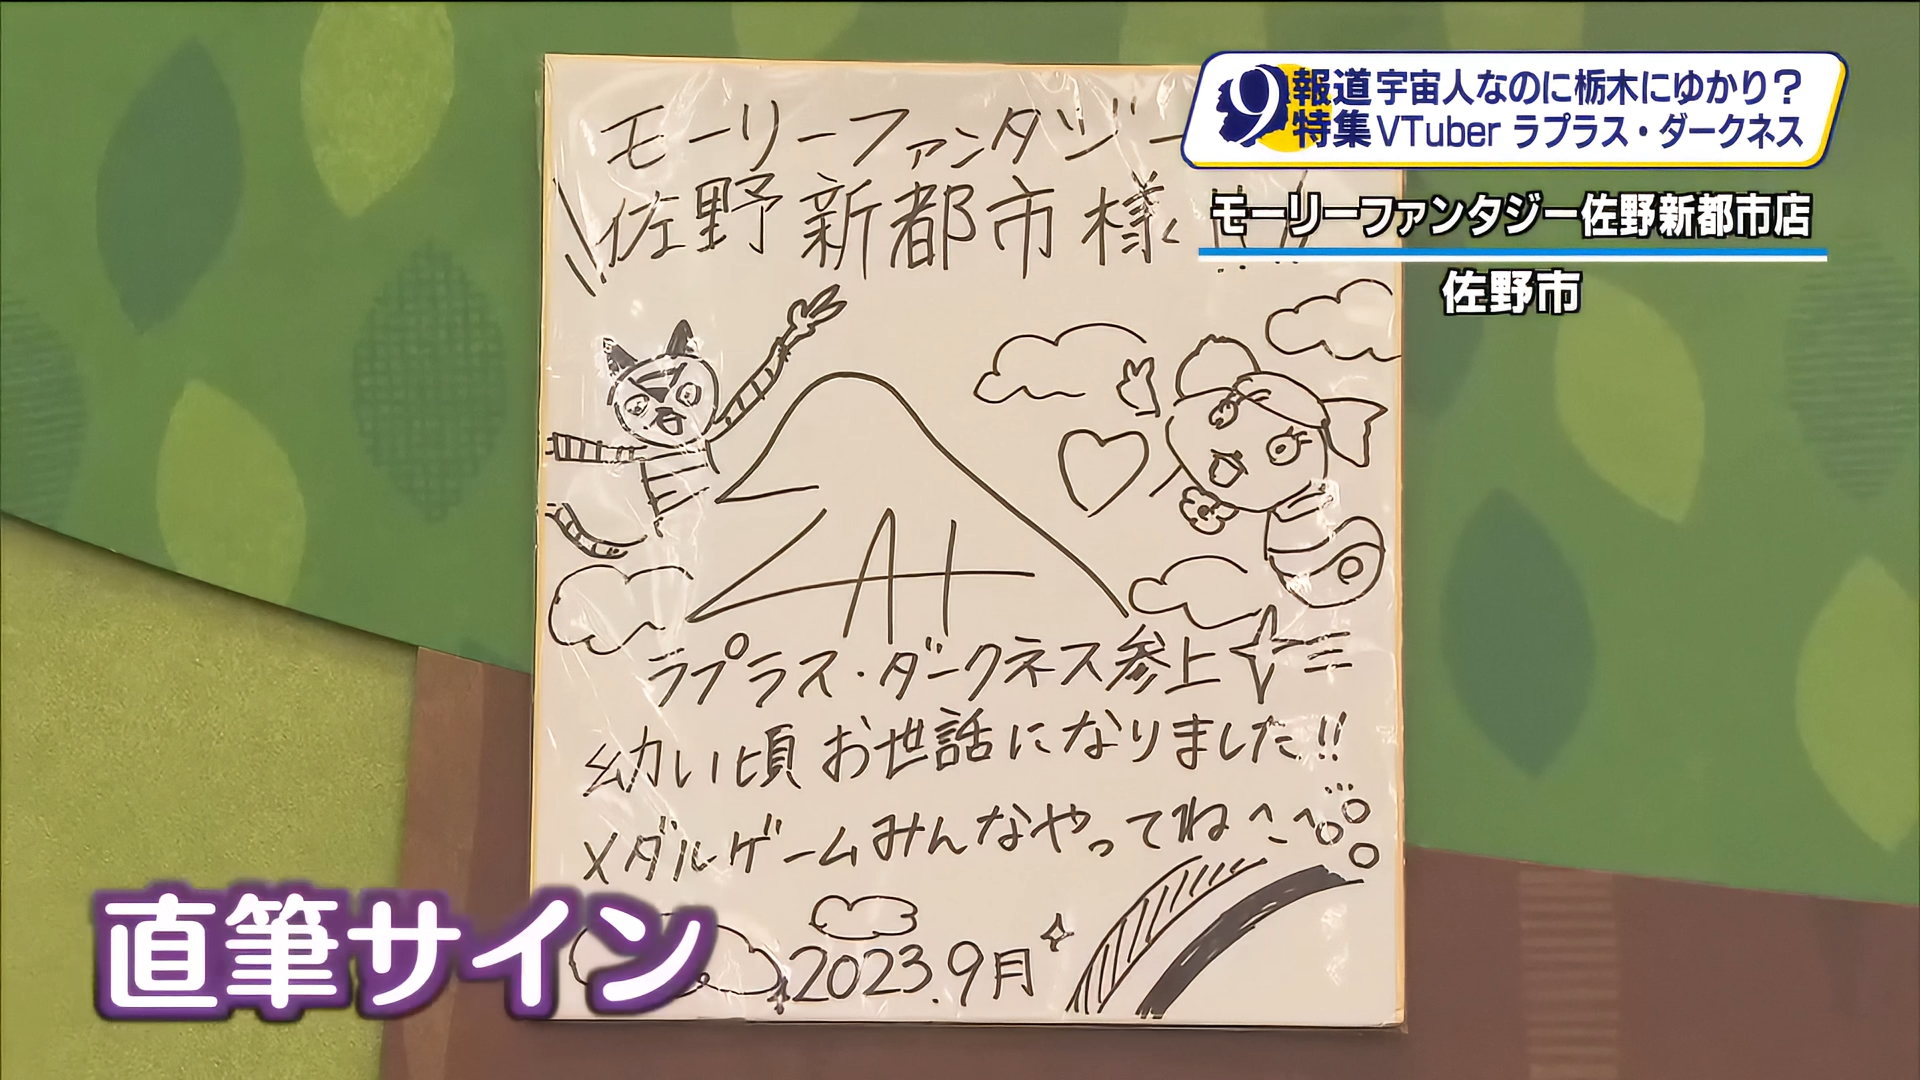 9 報道特集
宇宙人なのに栃木にゆかり?
VTuber ラプラス・ダークネス
モーリーファンタジー佐野新都市店
佐野市
モーリーファンタジー
佐野新都市様
ラプラス・ダークネス参上
幼い頃お世話になりました!!
メダルゲームみんなやってね
2023.9月
直筆サイン